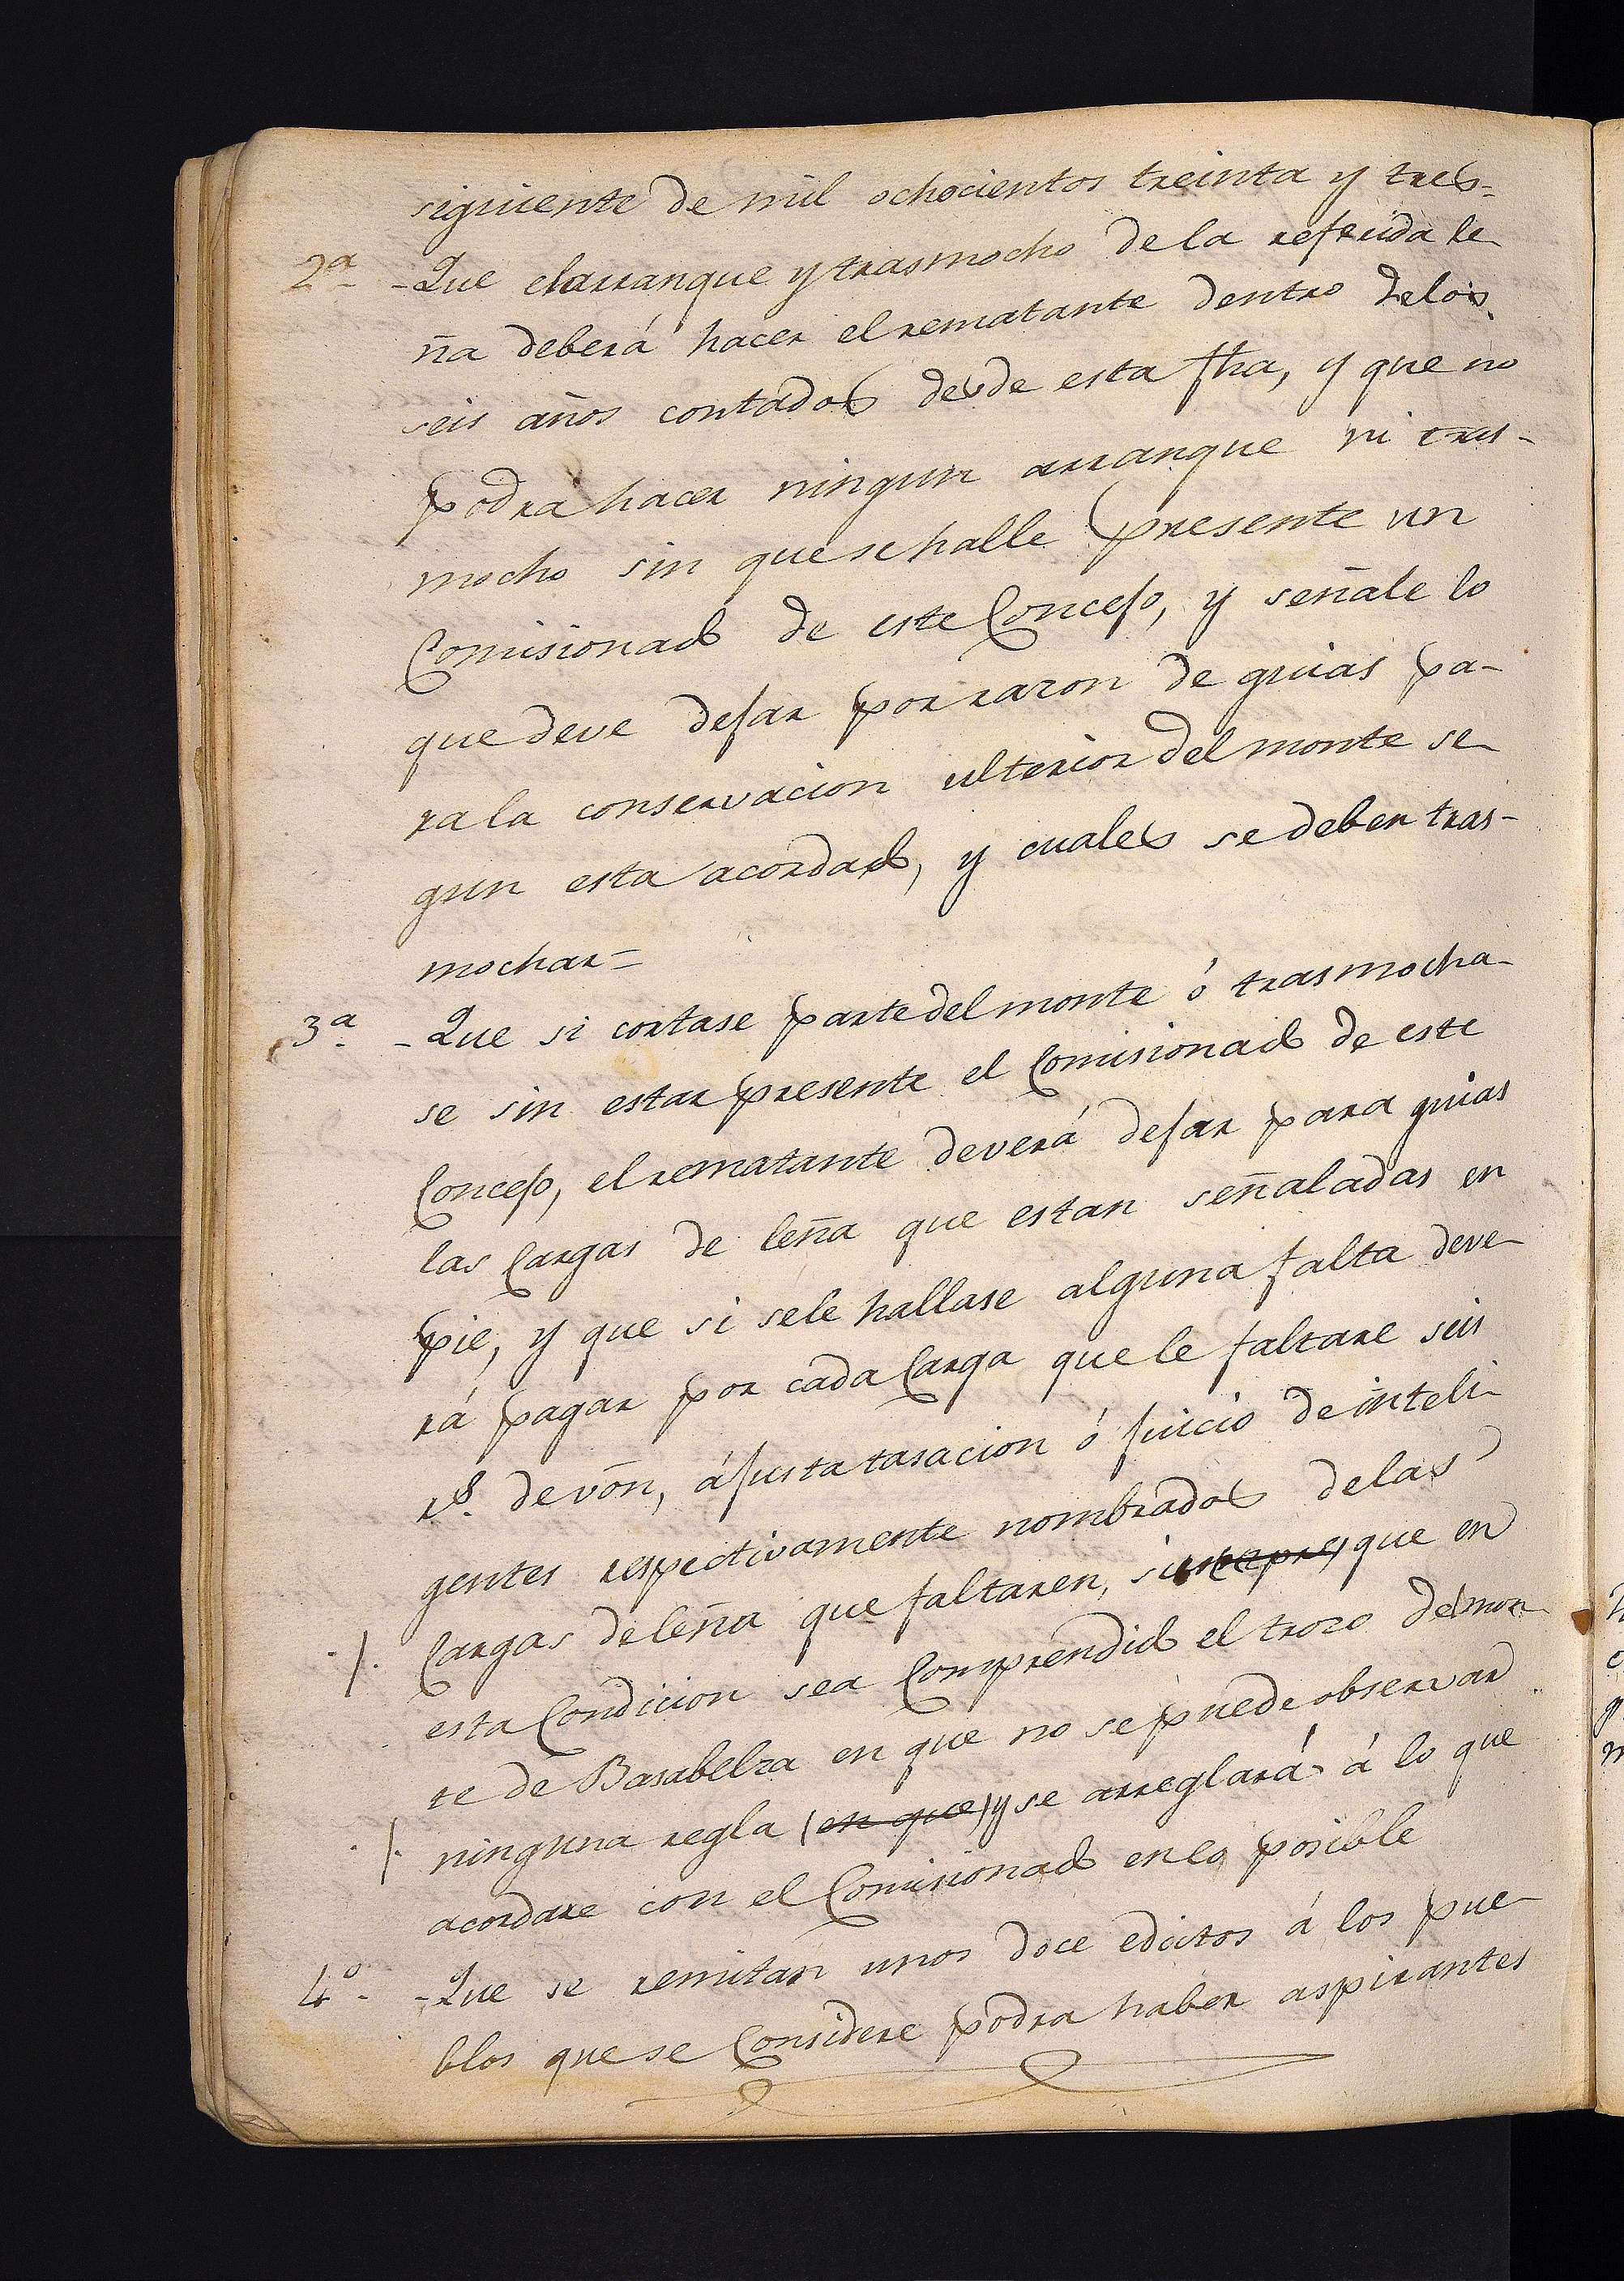 siguiente de mil ochocientos treinta y tres=
2ª - Que el arranque y trasmocho de la referida le-
ña deberá hacer el rematante dentro de los
seis años contados desde esta fha, y que no
podra hacer ningun arranque ni tras-
mocho sin que se halle presente un
Comisionado de este Concejo, y señale lo
que deve dejar por razon de guias pa-
ra la conservacion ulterior del monte se-
gun esta acordado, y cuales se deben tras-
mochar=
3ª - Que si cortase parte del monte ó trasmocha-
se sin estar presente el Comisionado de este
Concejo, el rematante deverá dejar para guias
las Cargas de leña que estan señaladas en
pie, y que si sele hallase alguna falta deve-
rá pagar por cada Carga que le faltare seis
rs. de von, á justa tasacion ó juicio de inteli-
gentes respectivamente nombrados de las
./. Cargas de leña que faltaren, que en
esta Condicion sea Comprendido el trozo del mon-
te de Basabelza en que no se puede observar
./. ninguna regla (en que) y se arreglará á lo que
acordare con el Comisionado en lo posible
4º - Que se remitan unos doce edictos á los pue-
blos que se Considere podra haber aspirantes